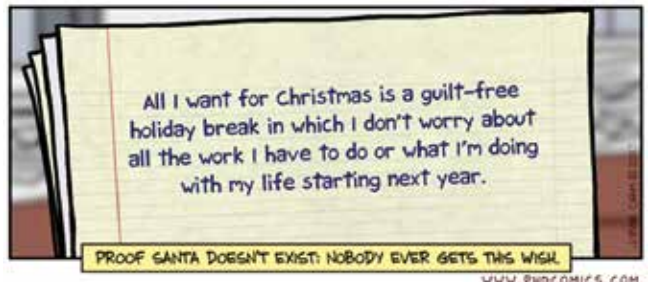 All I want for Christmas is a guilt-free
holiday break in which I don't worry about
all the work I have to do or what I'm doing
with my life starting next year.
PROOF SANTA DOESN'T EXIST: NOBODY EVER GETS THIS WISH.
WWW.PHDCOMICS.COM